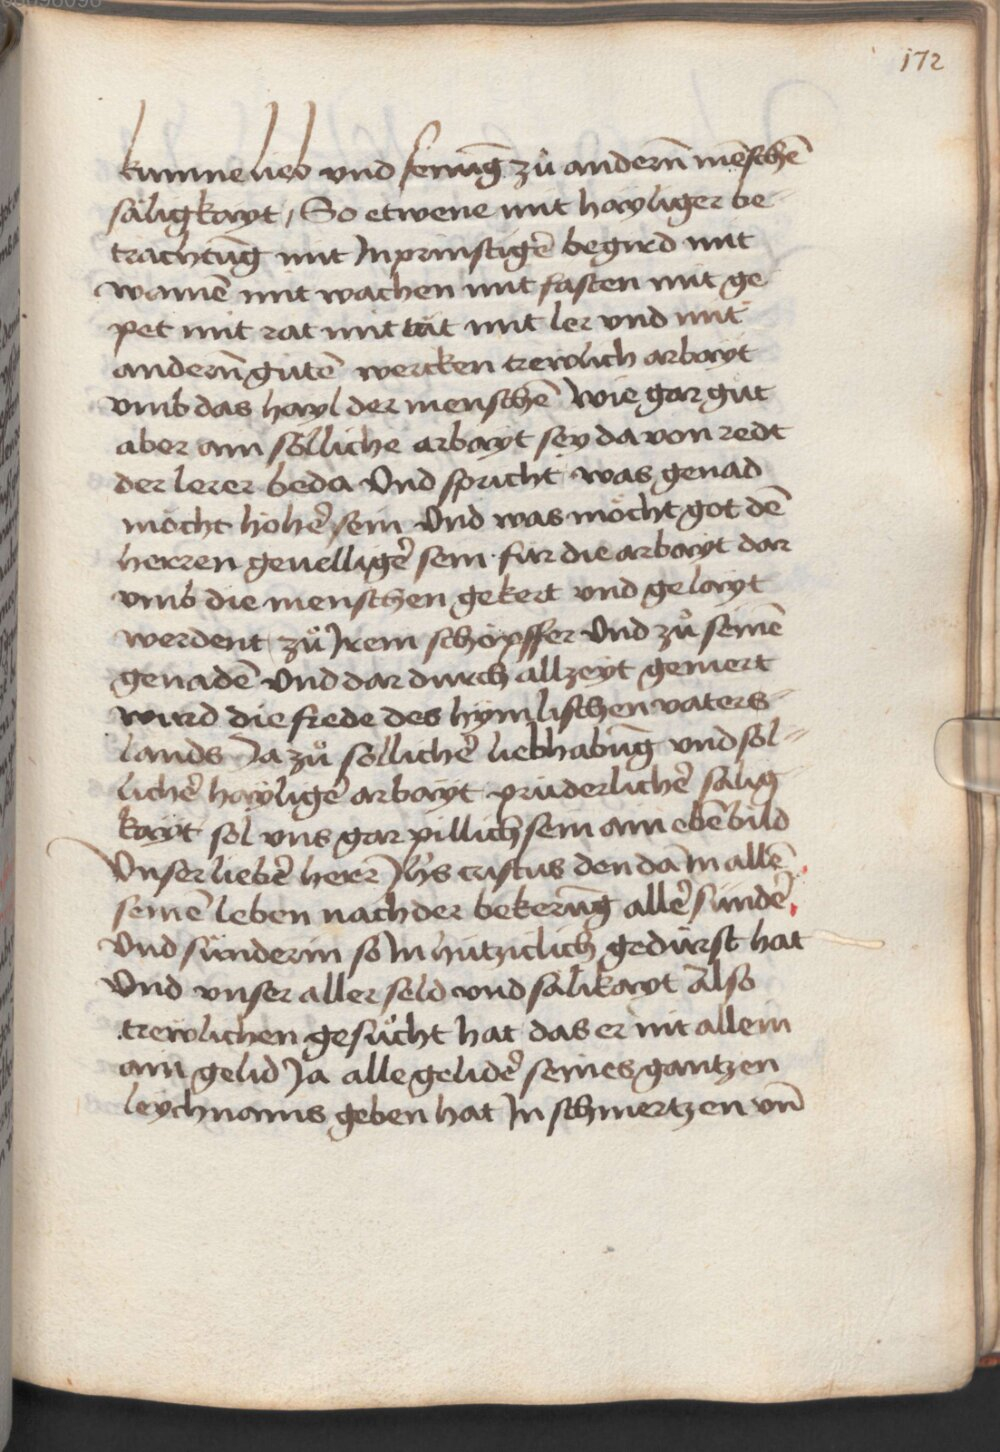 172
kumne lieb vnd senūg zů anderm̄ mēschē
säligkayt / So etwene mit häyliger be
trachtūg mit Jnprinstigē begird mit
wainē mit wachen mit fasten mit ge
pet mit rat mit tät mit ler vnd mit
anderm̄ gutē wercken trewlich arbayt
vmb das hayl der menschē wie gar gut
aber ain sölliche arbayt sey da von redt
der lerer beda Vnd spricht was genad
möcht höher̄ sein Vnd was möcht got dē
herren geuelliger̄ sein für die arbayt dar
vmb die menschen gekert vnd gelayt
werdent zů Jrem schöpffer Vnd zů seinē
genadē Vnd dar durch allzeyt gemert
wird die frede des hymlischen vaters
lands Ja zů sollicher̄ liebhabūg vnd söl
licher̄ häyliger̄ arbayt prüderlicher̄ sälig
kayt sol vns gar pillich sein ain ebēbild
Vnser lieber̄ herr̄ Jhs cristus den dā in allē
seinē leben nach der bekerūg aller̄ sünder̄
Vnd sünderin so Jn hitziclich gedürst hat
Vnd vnser aller seld vnd sälikayt Also
trewlichen gesůcht hat das er nit allein
ain gelid Ja alle gelider̄ seines gantzen
leychnams geben hat Jn schmertzen vn̄